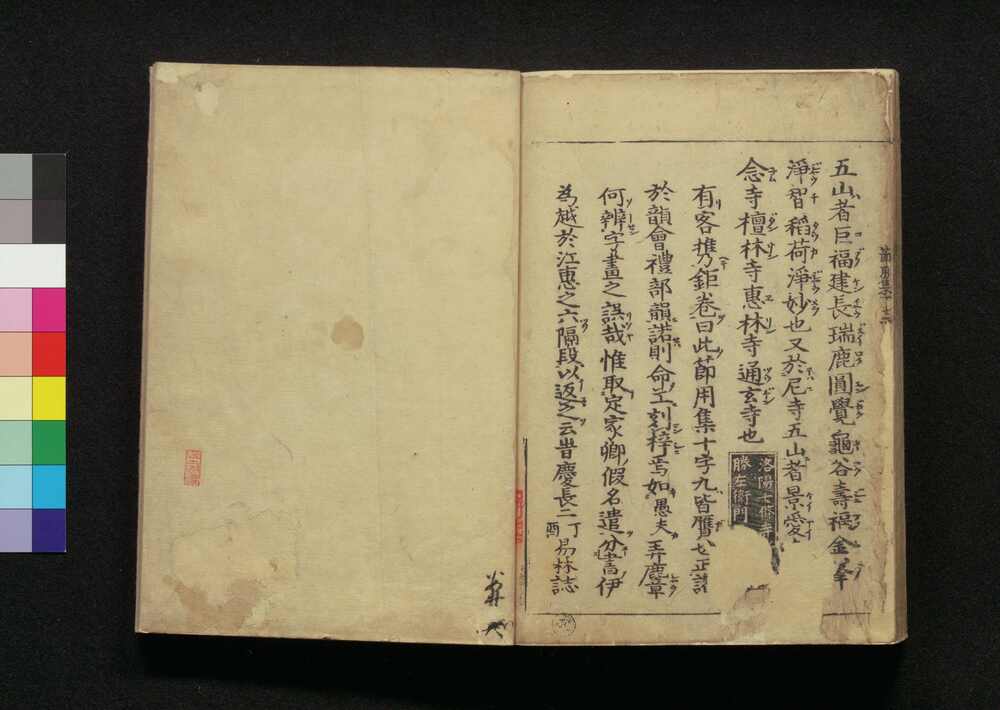 五山者巨福建長瑞鹿圓覺龜谷壽福金峯
淨智稻荷淨妙也又於尼寺五山者景愛
念寺檀林寺惠林寺通玄寺也
洛陽七條寺
勝左衛門
有客携鉅卷曰此節用集十字九皆贋也正諸
於韻會禮部韻諾則命工刻梓焉如愚夫弄麞章
何辨字畫之誤哉惟取定家卿假名遣分書伊
為越於江惠之六隔段以返之云旹慶長二丁酉易林誌